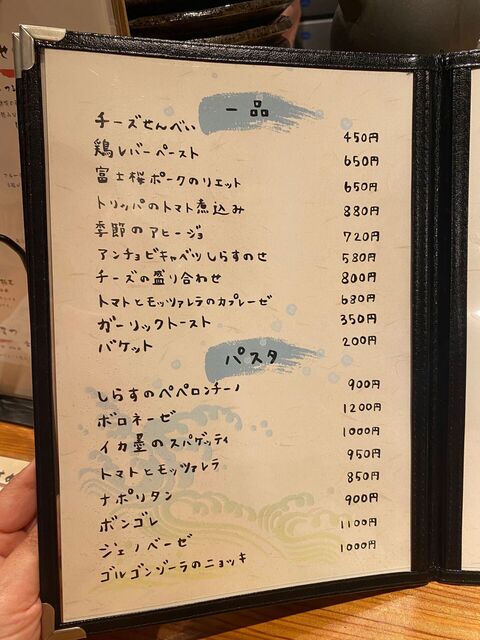 一品
チーズせんべい 450円
鶏レバーペースト 650円
富士桜ポークのリエット 650円
トリッパのトマト煮込み 880円
季節のアヒージョ 720円
アンチョビキャベツしらすのせ 580円
チーズの盛り合わせ 800円
トマトとモッツァレラのカプレーゼ 680円
ガーリックトースト 350円
バケット 200円
パスタ
しらすのペペロンチーノ 900円
ボロネーゼ 1200円
イカ墨のスパゲッティ 1000円
トマトとモッツァレラ 950円
ナポリタン 850円
ボンゴレ 900円
ジェノベーゼ 1100円
ゴルゴンゾーラのニョッキ 1000円